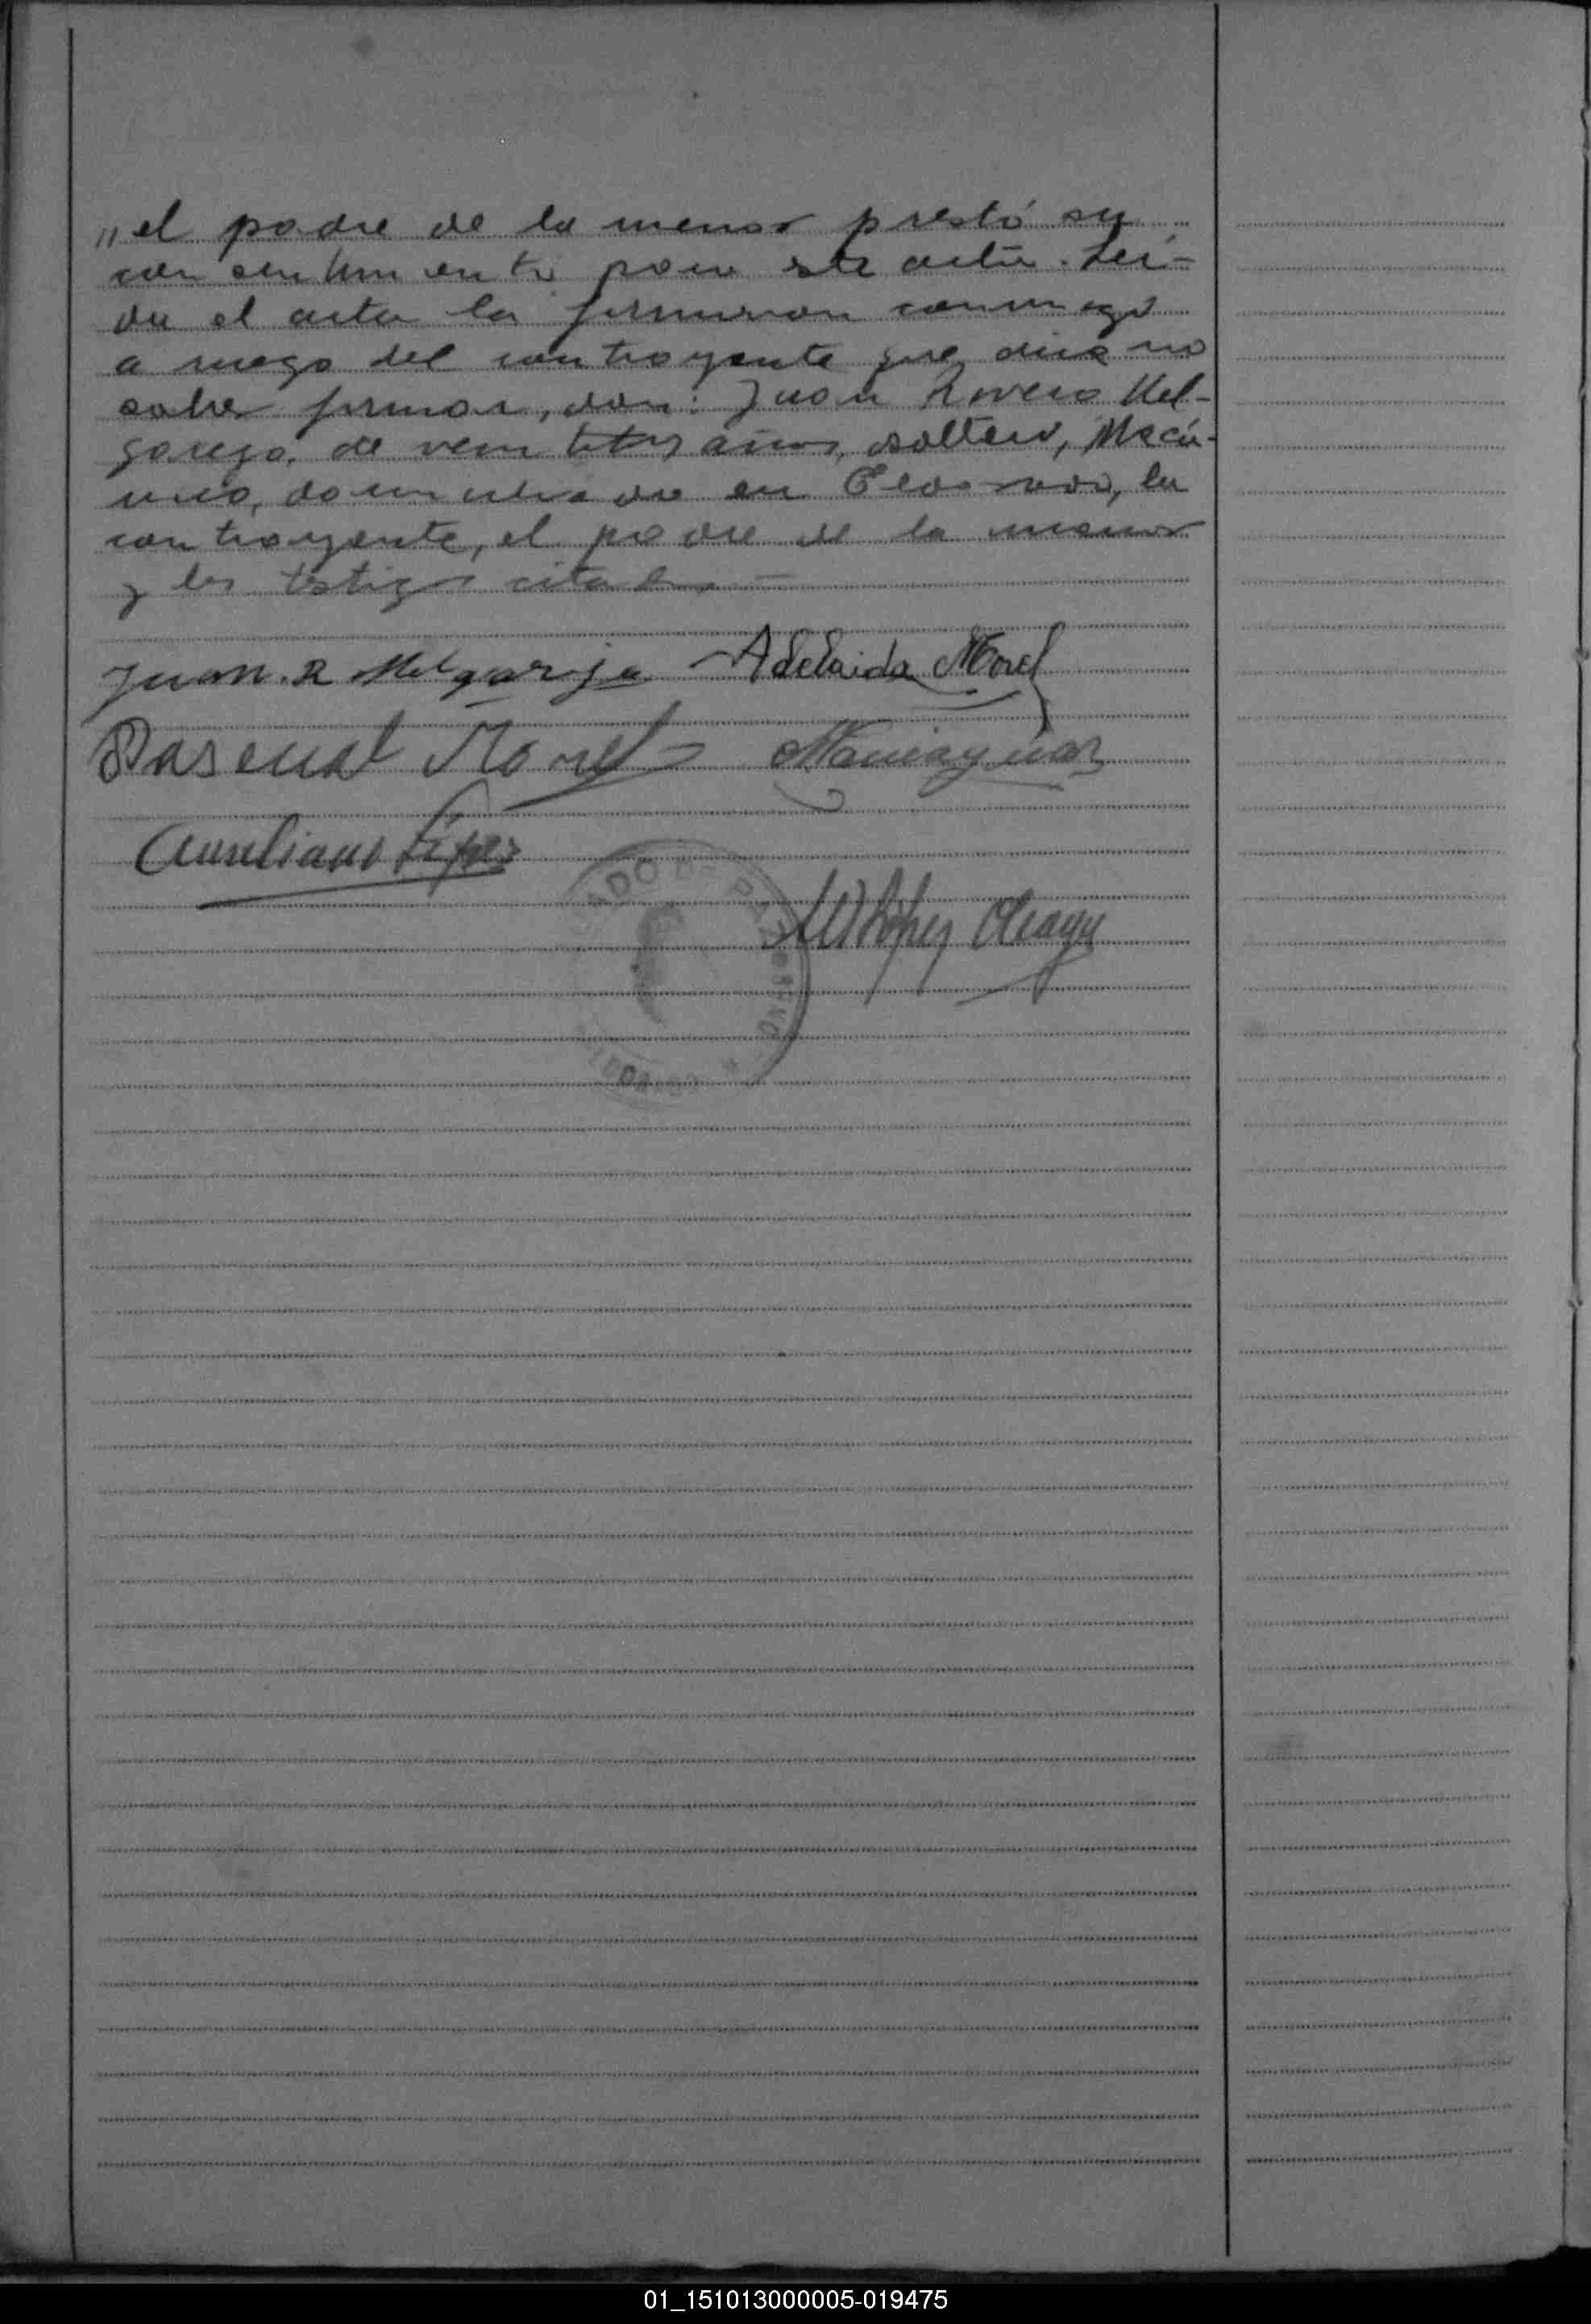 "el padre de la menor prestó su
consentimiento para este acto. Leí-
da el acta la firmaron conmigo
a ruego del contrayente que dice no
saber firmar, don: Juan Ramón Mel-
garejo, de veintitrés años, soltero, Mecá-
nico, domiciliado en Eldorado, la
contrayente, el padre de la menor
y los testigos citados. —
Juan. R Melgarejo Adelaida Morel
Pascual Morel
Aureliano López
López
01_151013000005-019475